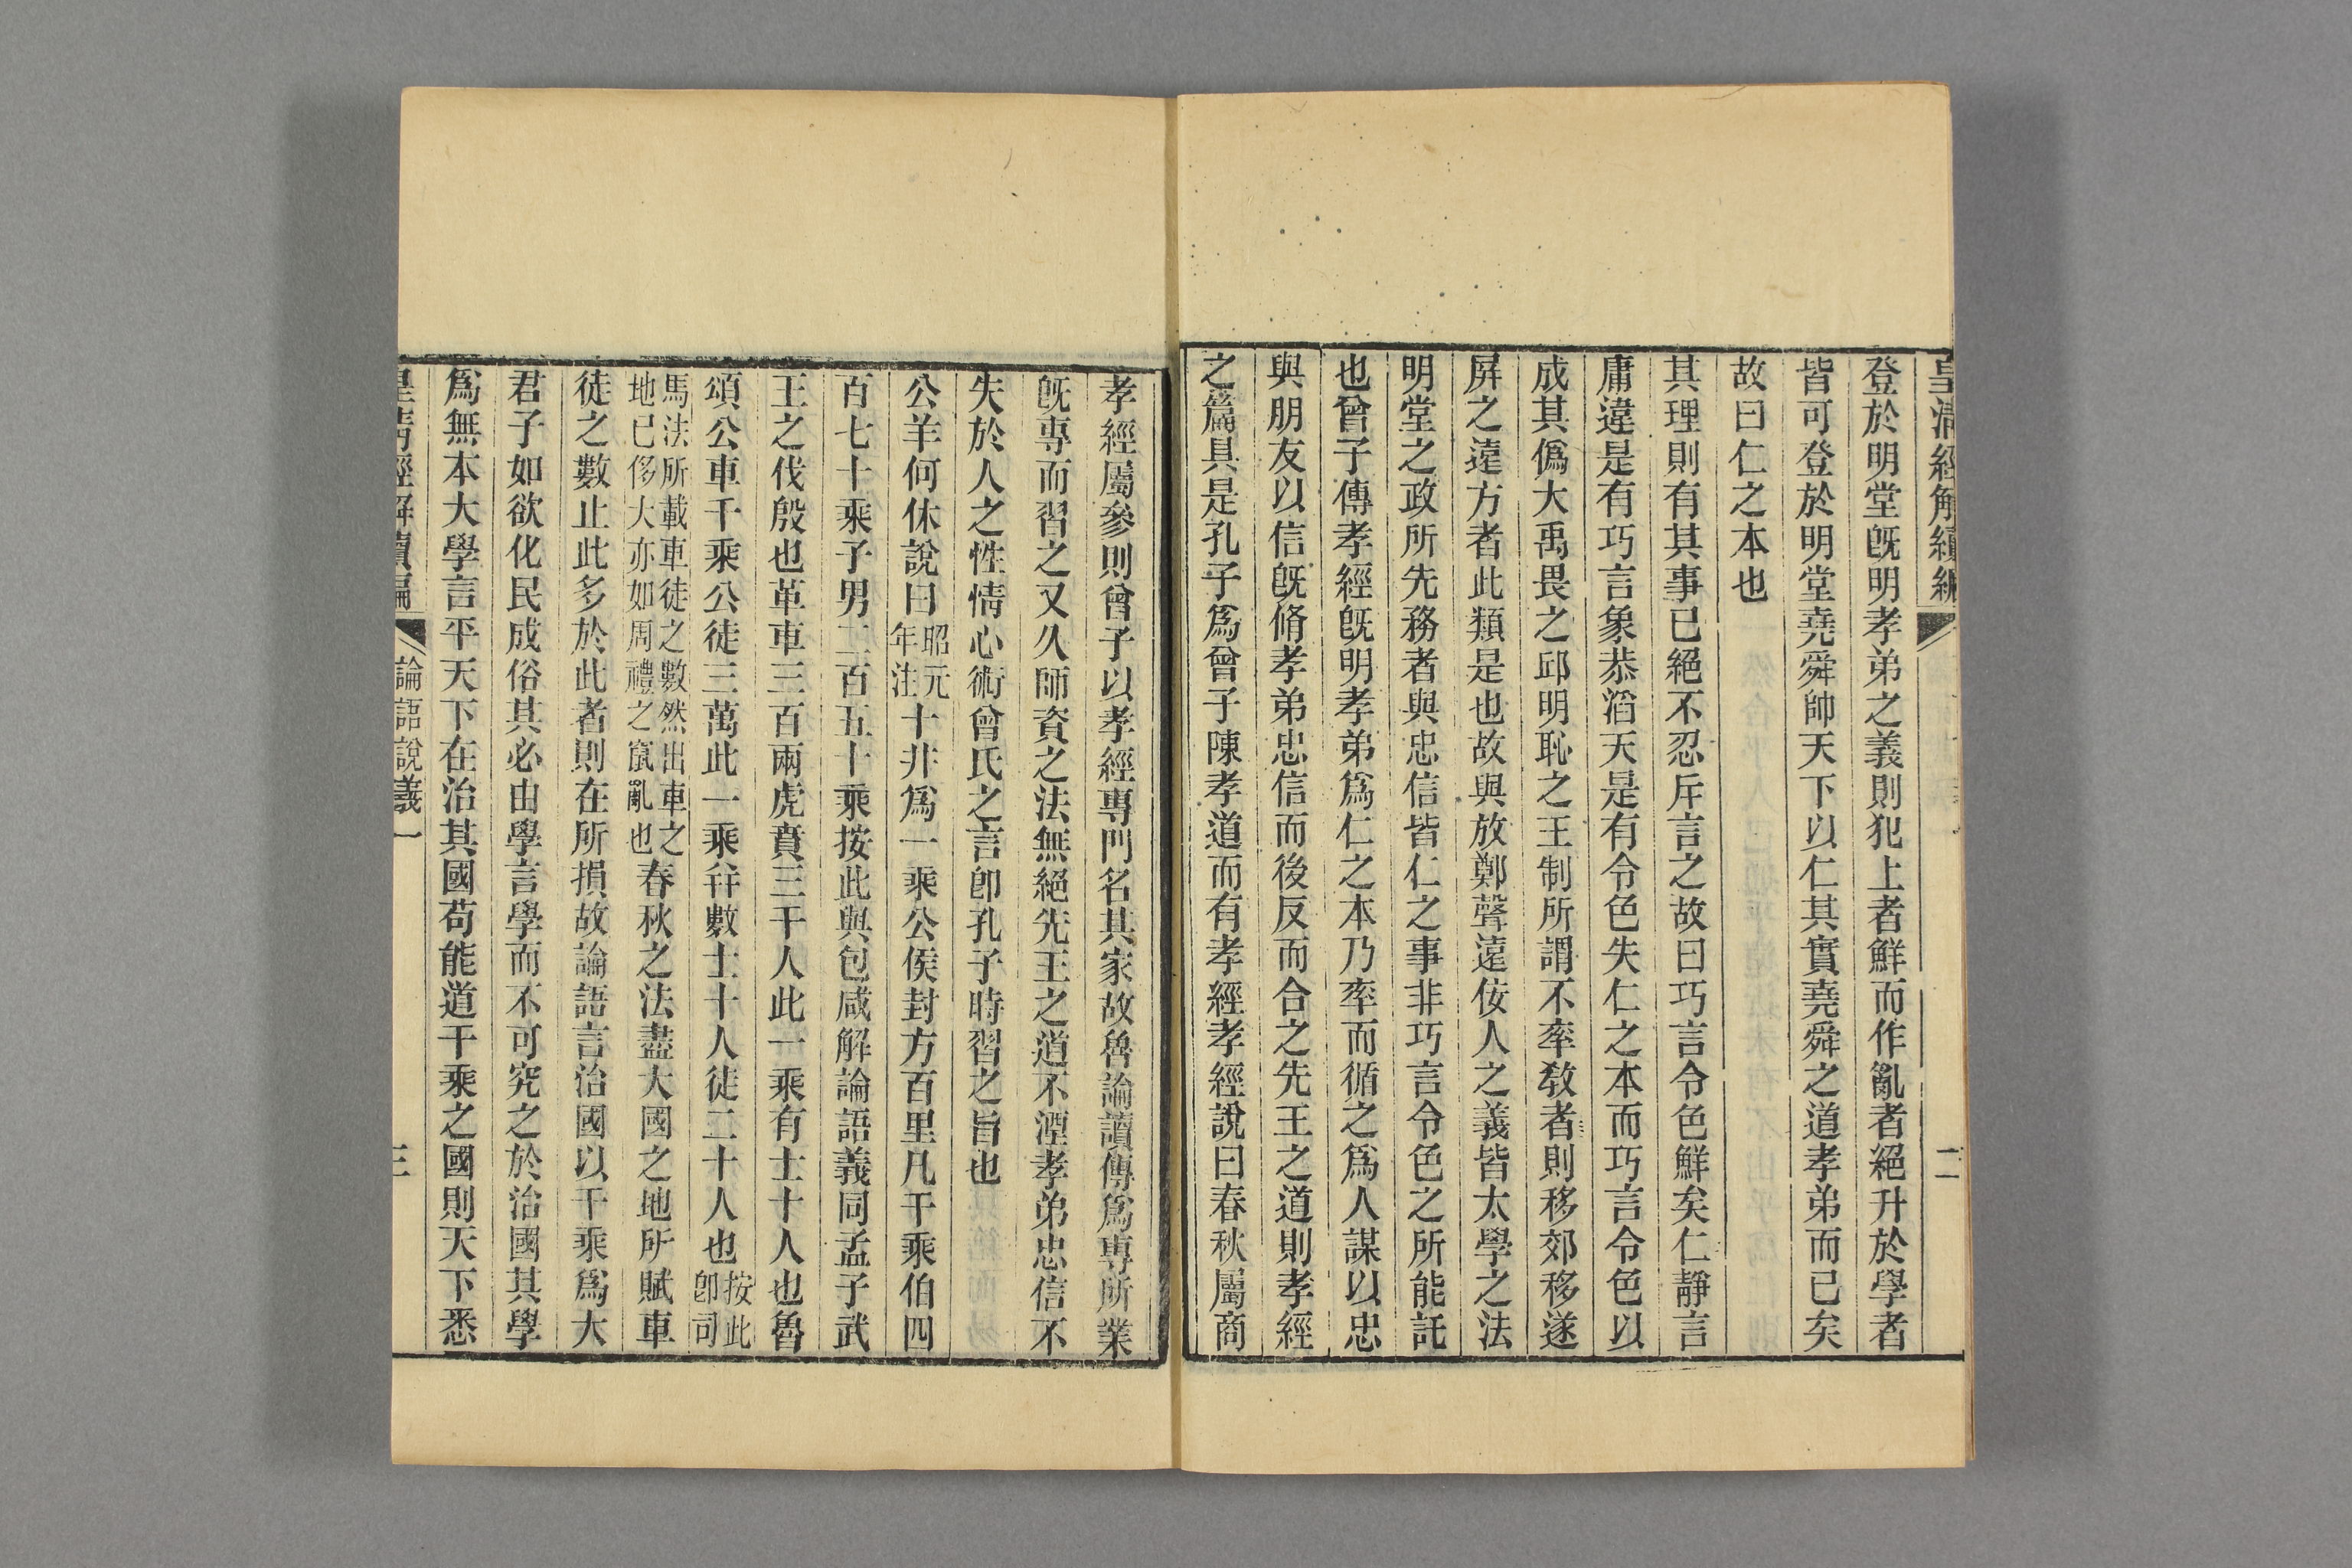 皇清經解續編 二
登於明堂旣明孝弟之義則犯上者鮮而作亂者絕升於學者
皆可登於明堂堯舜帥天下以仁其實堯舜之道孝弟而已矣
故曰仁之本也
其理則有其事已絕不忍斥言之故曰巧言令色鮮矣仁靜言
庸違是有巧言象恭滔天是有令色失仁之本而巧言令色以
成其僞大禹畏之邱明恥之王制所謂不率敎者則移郊移遂
屏之遠方者此類是也故與放鄭聲遠佞人之義皆太學之法
明堂之政所先務者與忠信皆仁之事非巧言令色之所能託
也曾子傳孝經旣明孝弟爲仁之本乃率而循之爲人謀以忠
與朋友以信旣脩孝弟忠信而後反而合之先王之道則孝經
之篇具是孔子爲曾子陳孝道而有孝經孝經說曰春秋屬商
孝經屬參則曾子以孝經專門名其家故魯論讀傳爲專所業
旣專而習之又久師資之法無絕先王之道不湮孝弟忠信不
失於人之性情心術曾氏之言卽孔子時習之旨也
公羊何休說曰昭元年注十井爲一乘公侯封方百里凡千乘伯四
百七十乘子男二百五十乘按此與包咸解論語義同孟子武
王之伐殷也革車三百兩虎賁三千人此一乘有士十人也魯
頌公車千乘公徒三萬此一乘幷數士十人徒二十人也按此卽司
馬法所載車徒之數然出車之地已侈大亦如周禮之竄亂也春秋之法盡大國之地所賦車
徒之數止此多於此者則在所損故論語言治國以千乘爲大
君子如欲化民成俗其必由學言學而不可究之於治國其學
爲無本大學言平天下在治其國苟能道千乘之國則天下悉
皇清經解續編 論語說義一 三